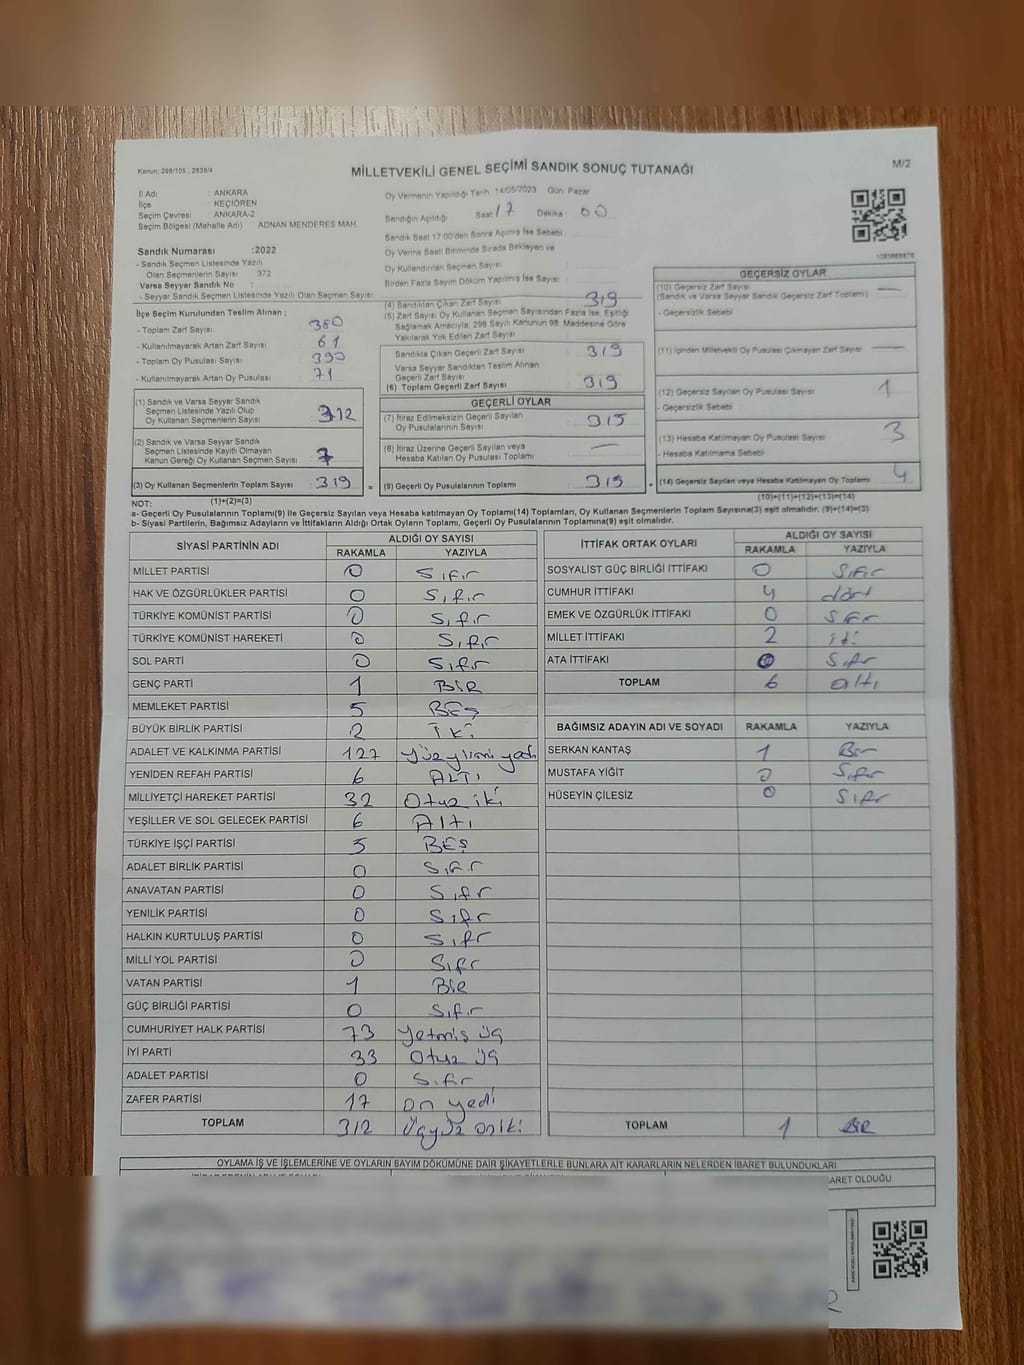 Kanun: 298/105 , 2839/4
MİLLETVEKİLİ GENEL SEÇİMİ SANDIK SONUÇ TUTANAĞI
M/2
İl Adı : ANKARA
İlçe : KEÇİÖREN
Seçim Çevresi: ANKARA-2
Seçim Bölgesi (Mahalle Adı) : ADNAN MENDERES MAH.
Sandık Numarası :2022
- Sandık Seçmen Listesinde Yazılı
Olan Seçmenlerin Sayısı : 372
Varsa Seyyar Sandık No :
- Seyyar Sandık Seçmen Listesinde Yazılı Olan Seçmen Sayısı:
Oy Vermenin Yapıldığı Tarih : 14/05/2023 Gün: Pazar
Sandığın Açıldığı Saat : 17 Dakika : 00
Sandık Saat 17:00'den Sonra Açılmış İse Sebebi :
Oy Verme Saati Bitiminde Sırada Bekleyen ve
Oy Kullandırılan Seçmen Sayısı :
Birden Fazla Sayım Döküm Yapılmış İse Sayısı :
İlçe Seçim Kurulundan Teslim Alınan ;
- Toplam Zarf Sayısı : 380
- Kullanılmayarak Artan Zarf Sayısı : 61
- Toplam Oy Pusulası Sayısı : 390
- Kullanılmayarak Artan Oy Pusulası : 71
(1) Sandık ve Varsa Seyyar Sandık
Seçmen Listesinde Yazılı Olup
Oy Kullanan Seçmenlerin Sayısı : 312
(2) Sandık ve Varsa Seyyar Sandık
Seçmen Listesinde Kayıtlı Olmayan
Kanun Gereği Oy Kullanan Seçmen Sayısı : 7
(3) Oy Kullanan Seçmenlerin Toplam Sayısı : 319
(1)+(2)=(3)
(4) Sandıktan Çıkan Zarf Sayısı : 319
(5) Zarf Sayısı Oy Kullanan Seçmen Sayısından Fazla İse, Eşitliği
Sağlamak Amacıyla, 298 Sayılı Kanunun 98. Maddesine Göre
Yakılarak Yok Edilen Zarf Sayısı :
Sandıkta Çıkan Geçerli Zarf Sayısı : 319
Varsa Seyyar Sandıktan Teslim Alınan
Geçerli Zarf Sayısı :
(6) Toplam Geçerli Zarf Sayısı : 319
GEÇERLİ OYLAR
(7) İtiraz Edilmeksizin Geçerli Sayılan
Oy Pusulalarının Sayısı : 315
(8) İtiraz Üzerine Geçerli Sayılan veya
Hesaba Katılan Oy Pusulası Toplamı : —
= (9) Geçerli Oy Pusulalarının Toplamı : 315 +
GEÇERSİZ OYLAR
(10) Geçersiz Zarf Sayısı : —
(Sandık ve Varsa Seyyar Sandık Geçersiz Zarf Toplamı)
- Geçersizlik Sebebi
(11) İçinden Milletvekili Oy Pusulası Çıkmayan Zarf Sayısı : —
(12) Geçersiz Sayılan Oy Pusulası Sayısı : 1
- Geçersizlik Sebebi
(13) Hesaba Katılmayan Oy Pusulası Sayısı : 3
- Hesaba Katılmama Sebebi
(14) Geçersiz Sayılan veya Hesaba Katılmayan Oy Toplamı : 4
(10)+(11)+(12)+(13)=(14)
NOT:
a- Geçerli Oy Pusulalarının Toplamı(9) ile Geçersiz Sayılan veya Hesaba katılmayan Oy Toplamı(14) Toplamları, Oy Kullanan Seçmenlerin Toplam Sayısına(3) eşit olmalıdır. (9)+(14)=(3)
b- Siyasi Partilerin, Bağımsız Adayların ve İttifakların Aldığı Ortak Oyların Toplamı, Geçerli Oy Pusulalarının Toplamına(9) eşit olmalıdır.
SİYASİ PARTİNİN ADI ALDIĞI OY SAYISI
RAKAMLA YAZIYLA
MİLLET PARTİSİ 0 Sıfır
HAK VE ÖZGÜRLÜKLER PARTİSİ 0 Sıfır
TÜRKİYE KOMÜNİST PARTİSİ 0 Sıfır
TÜRKİYE KOMÜNİST HAREKETİ 0 Sıfır
SOL PARTİ 0 Sıfır
GENÇ PARTİ 1 BİR
MEMLEKET PARTİSİ 5 BEŞ
BÜYÜK BİRLİK PARTİSİ 2 İki
ADALET VE KALKINMA PARTİSİ 127 yüzyirmi yedi
YENİDEN REFAH PARTİSİ 6 ALTI
MİLLİYETÇİ HAREKET PARTİSİ 32 Otuz iki
YEŞİLLER VE SOL GELECEK PARTİSİ 6 Altı
TÜRKİYE İŞÇİ PARTİSİ 5 BEŞ
ADALET BİRLİK PARTİSİ 0 Sıfır
ANAVATAN PARTİSİ 0 Sıfır
YENİLİK PARTİSİ 0 Sıfır
HALKIN KURTULUŞ PARTİSİ 0 Sıfır
MİLLİ YOL PARTİSİ 0 Sıfır
VATAN PARTİSİ 1 BİR
GÜÇ BİRLİĞİ PARTİSİ 0 Sıfır
CUMHURİYET HALK PARTİSİ 73 yetmiş üç
İYİ PARTİ 33 Otuz üç
ADALET PARTİSİ 0 Sıfır
ZAFER PARTİSİ 17 on yedi
TOPLAM 312 üçyüz oniki
İTTİFAK ORTAK OYLARI ALDIĞI OY SAYISI
RAKAMLA YAZIYLA
SOSYALİST GÜÇ BİRLİĞİ İTTİFAKI 0 Sıfır
CUMHUR İTTİFAKI 4 dört
EMEK VE ÖZGÜRLÜK İTTİFAKI 0 Sıfır
MİLLET İTTİFAKI 2 iki
ATA İTTİFAKI 0 Sıfır
TOPLAM 6 altı
BAĞIMSIZ ADAYIN ADI VE SOYADI RAKAMLA YAZIYLA
SERKAN KANTAŞ 1 Bir
MUSTAFA YİĞİT 0 Sıfır
HÜSEYİN ÇİLESİZ 0 Sıfır
TOPLAM 1 BİR
OYLAMA İŞ VE İŞLEMLERİNE VE OYLARIN SAYIM DÖKÜMÜNE DAİR ŞİKAYETLERLE BUNLARA AİT KARARLARIN NELERDEN İBARET BULUNDUKLARI
ARET OLDUĞU